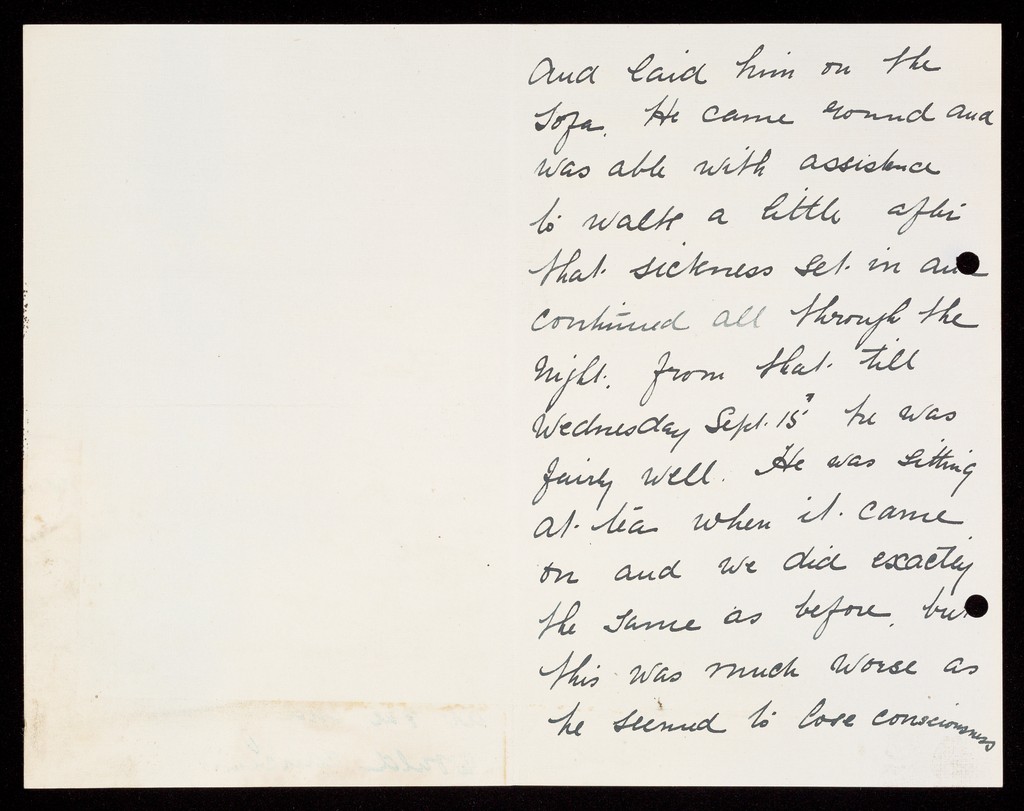 and laid him on the
Sofa. He came round and
was able with assistance
to walk a little after
that sickness set in and
continued all through the
night. from that till
Wednesday Sept. 15" he was
fairly well. He was sitting
at tea when it came
on and we did exactly
the same as before, but
this was much worse as
he seemed to lose consciousness